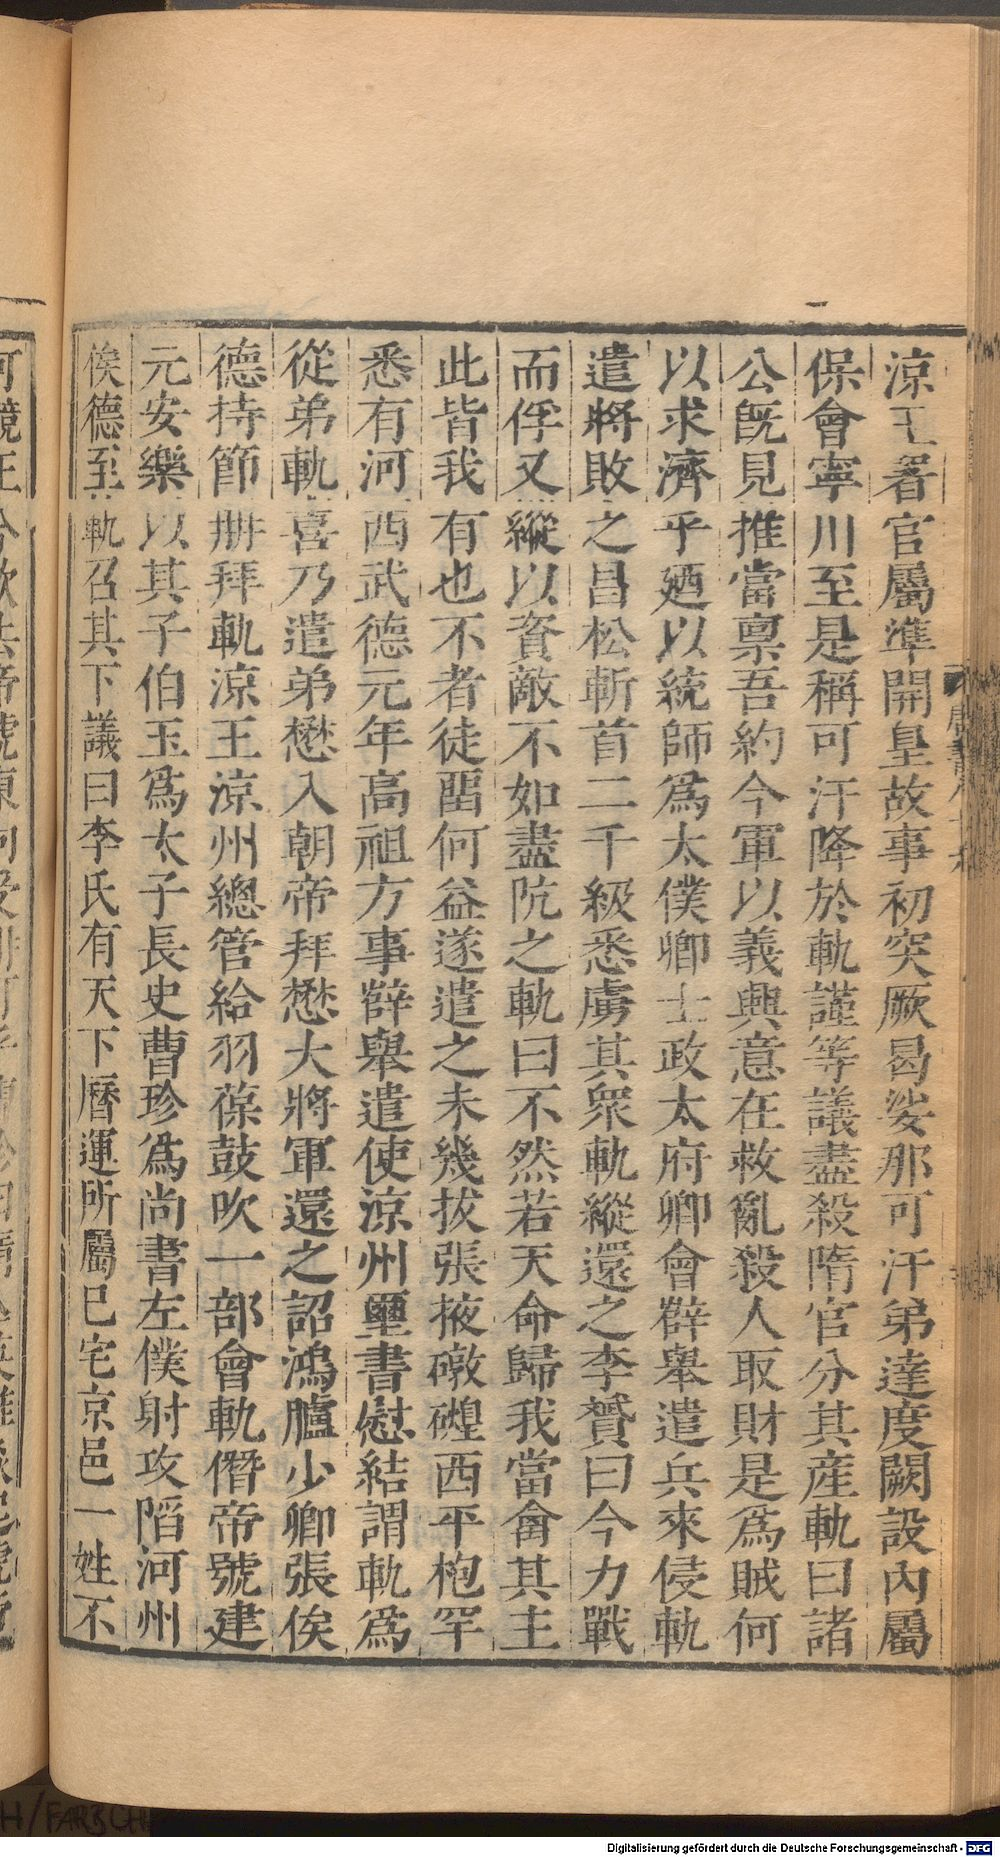 涼王署官屬準開皇故事初突厥曷娑那可汗弟達度闕設內屬
保會寧川至是稱可汗降於軌謹等議盡殺隋官分其產軌曰諸
公旣見推當禀吾約今軍以義興意在救亂殺人取財是爲賊何
以求濟乎廼以統師爲太僕卿士政太府卿會薛舉遣兵來侵軌
遣將敗之昌松斬首二千級悉虜其衆軌縱還之李贇曰今力戰
而俘又縱以資敵不如盡阬之軌曰不然若天命歸我當禽其主
此皆我有也不者徒畱何益遂遣之未幾拔張掖燉煌西平枹罕
悉有河西武德元年高祖方事薛舉遣使涼州璽書慰結謂軌爲
從弟軌喜乃遣弟懋入朝帝拜懋大將軍還之詔鴻臚少卿張俟
德持節冊拜軌涼王涼州總管給羽葆鼓吹一部會軌僭帝號建
元安樂以其子伯玉爲太子長史曹珍爲尚書左僕射攻陷河州
俟德至軌召其下議曰李氏有天下曆運所屬已宅京邑一姓不
Digitalisierung gefördert durch die Deutsche Forschungsgemeinschaft - DFG